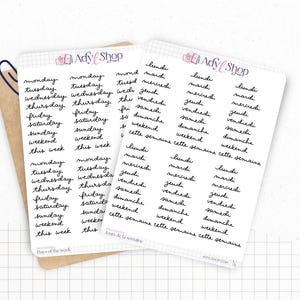 LAdy E Shop
monday monday mo
tuesday tuesday tu
wednesday wednesday
thursday thursday
friday friday
saturday saturday
sunday sunday
weekend weekend
this week this week
monday monday
tuesday tuesday
wednesday wednesday
thursday thursday
friday friday
saturday saturday
sunday sunday
weekend weekend
this week this week
Days of the week
LAdy E Shop
lundi lundi lundi
mardi mardi mardi
mercredi mercredi mercredi
jeudi jeudi jeudi
vendredi vendredi vendredi
samedi samedi samedi
dimanche dimanche dimanche
weekend weekend weekend
cette semaine cette semaine cette semaine
lundi lundi lundi
mardi mardi mardi
mercredi mercredi mercredi
jeudi jeudi jeudi
vendredi vendredi vendredi
samedi samedi samedi
dimanche dimanche dimanche
weekend weekend weekend
cette semaine cette semaine cette semaine
Jours de la semaine